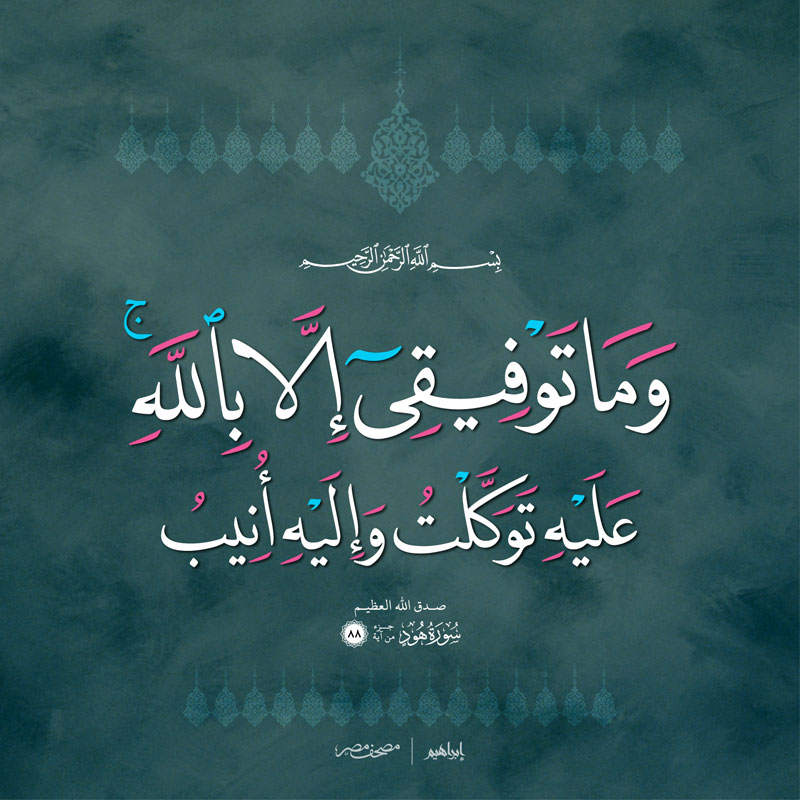 بِسْمِ ٱللَّهِ ٱلرَّحْمَٰنِ ٱلرَّحِيمِ
وَمَا تَوْفِيقِىٓ إِلَّا بِٱللَّهِ ۚ
عَلَيْهِ تَوَكَّلْتُ وَإِلَيْهِ أُنِيبُ
صدق الله العظيم
سُورَةُ هُودٍ جزء من آية ٨٨
إبراهيم | مصحف مصر